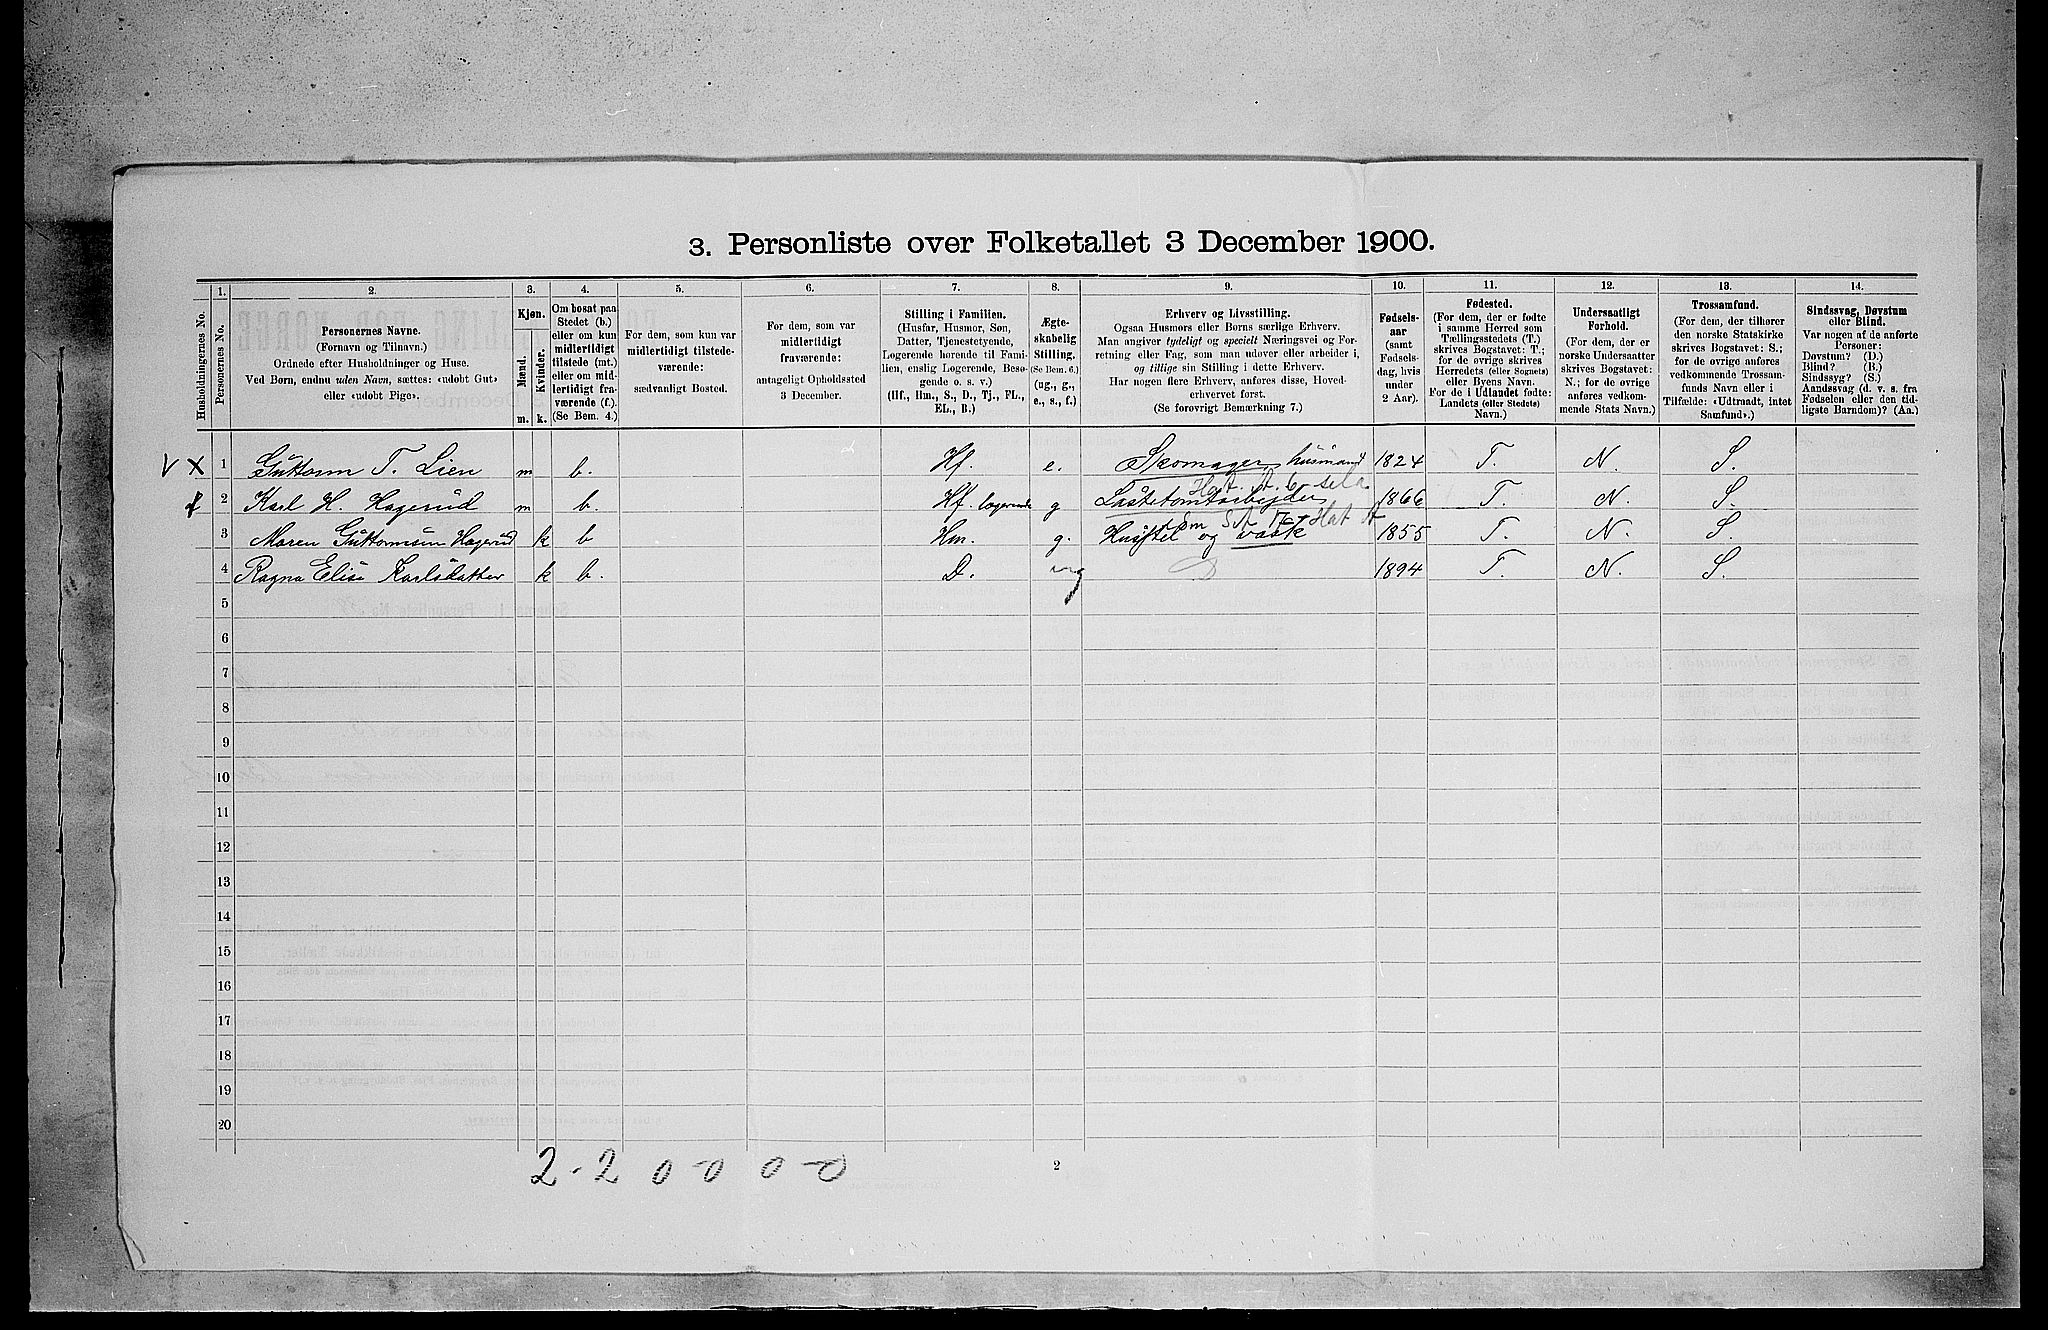 3. Personliste over Folketallet 3 December 1900.
Husholdningernes No.
1.
Personernes No.
2.
Personernes Navne.
(Fornavn og Tilnavn.)
Ordnede efter Husholdninger og Huse.
Ved Børn, endnu uden Navn, sættes: «udøbt Gut»
eller «udøbt Pige».
3.
Kjøn.
Mænd.
Kvinder.
m. k.
4.
Om bosat paa
Stedet (b.)
eller om kun
midlertidigt
tilstede (mt.)
eller om mid-
lertidigt fra-
værende (f.).
(Se Bem. 4.)
5.
For dem, som kun var
midlertidigt tilstede-
værende:
sædvanligt Bosted.
6.
For dem, som var
midlertidigt
fraværende:
antageligt Opholdssted
3 December.
7.
Stilling i Familien.
(Husfar, Husmor, Søn,
Datter, Tjenestetyende,
Logerende hørende til Fami-
lien, enslig Logerende, Besø-
gende o. s. v.)
(Hf., Hm., S., D., Tj., FL.,
EL., B.)
8.
Ægte-
skabelig
Stilling.
(Se Bem. 6.)
(ug., g.,
e., s., f.)
9.
Erhverv og Livsstilling.
Ogsaa Husmors eller Børns særlige Erhverv.
Man angiver tydeligt og specielt Næringsvei og For-
retning eller Fag, som man udøver eller arbeider i,
og tillige sin Stilling i dette Erhverv.
Har nogen flere Erhverv, anføres disse, Hoved-
erhvervet først.
(Se forøvrigt Bemærkning 7.)
10.
Fødsels-
aar
(samt
Fødsels-
dag, hvis
under
2 Aar).
11.
Fødested.
(For dem, der er fødte
i samme Herred som
Tællingsstedets (T.)
skrives Bogstavet: T.;
for de øvrige skrives
Herredets (eller Sognets)
eller Byens Navn.
For de i Udlandet fødte:
Landets (eller Stedets)
Navn.)
12.
Undersaatligt
Forhold.
(For dem, der er
norske Undersaatter
skrives Bogstavet:
N.; for de øvrige
anføres vedkom-
mende Stats Navn.)
13.
Trossamfund.
(For dem, der tilhører
den norske Statskirke
skrives Bogstavet: S.;
for de øvrige anføres
vedkommende Trossam-
funds Navn eller i
Tilfælde: «Udtraadt, intet
Samfund».)
14.
Sindssvag, Døvstum
eller Blind.
Var nogen af de anførte
Personer:
Døvstum? (D.)
Blind? (B.)
Sindssyg? (S.)
Aandssvag (d. v. s. fra
Fødselen eller den tid-
ligste Barndom)? (Aa.)
V X 1 Guttorm T. Lien m b. Hf. e. Skomager, husmand 1824 T. N. S.
2 Karl H. Hagerud m b. Hf. logerende g 1866 T. N. S.
3 Maren Guttormsen Hagerud k b Hm. g. og vask 1855 T. N. S.
4 Ragna Elise Karlsdatter k b. D. ug 1894 T. N. S.
5
6
7
8
9
10
11
12
13
14
15
16
17
18
19
20
2 - 2 0 - 0 0 - 0
2